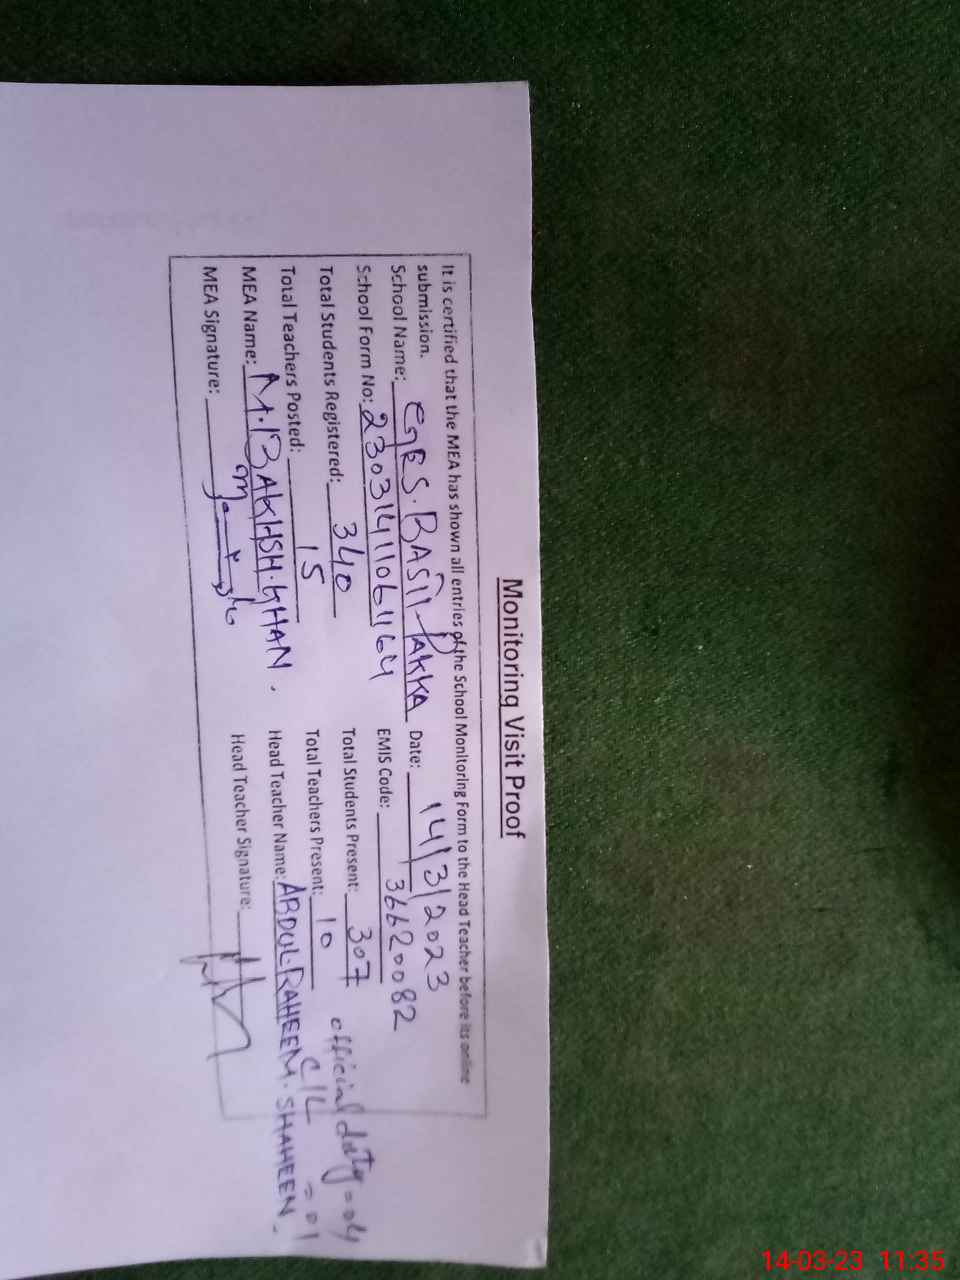 Monitoring Visit Proof
It is certified that the MEA has shown all entries of the School Monitoring Form to the Head Teacher before its online
submission.
School Name: GES. BASTI PAKKA Date: 14/3/2023
School Form No: 23031411061164 EMIS Code: 36620082
Total Students Registered: 340 Total Students Present: 307 official duty = 04
Total Teachers Posted: 15 Total Teachers Present: 10 C/L = 01
MEA Name: M.BAKHSH.KHAN. Head Teacher Name: ABDUL RAHEEM. SHAHEEN.
MEA Signature: Head Teacher Signature:
14-03-23 11:35